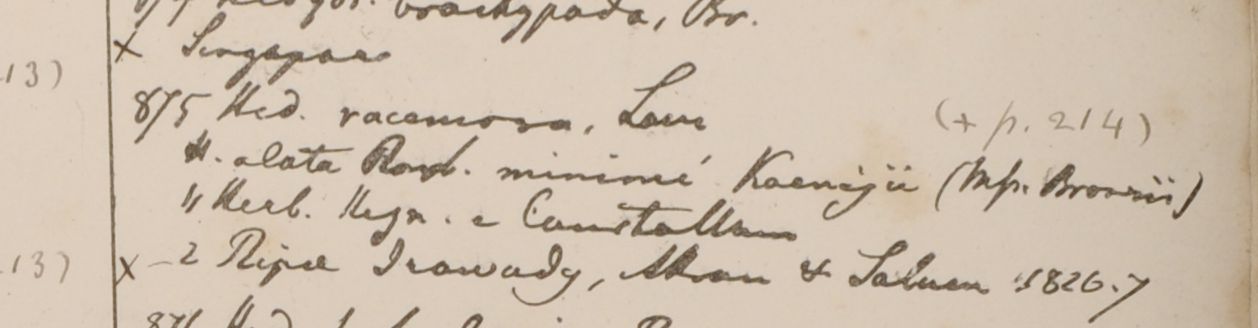 brachypoda, Br.
13) x Singapore
875 Hed. racemosa, Lam (+ p. 214)
H. alata Roxb. minimé Koenigii (Mss. Brownii)
" Herb. Heyn. e
13) x 2 Ripae Irawady, & Saluen 1826.7